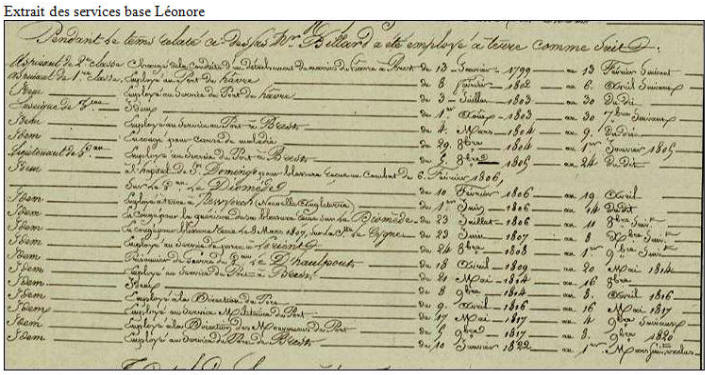 Extrait des services base Léonore
Pendant le tems relaté ci-dessus Mr. Billard a été employé à terre comme suit
Aspirant de 2e classe Chargé de la Conduite d'un détachement de marins du havre à Brest de 13 Janvier 1799 au 13 Février Suivant
aspirant de 1re classe Employé au Port du havre de 8 février 1802 au 6 Avril Suivant
Idem Employé au Service du Port du havre de 3 Juillet 1803 au 30 dudit
Enseigne de Vau Idem du 1er 1803 au 30 7bre Suivant
Idem Employé au Service du Port à Brest du 4 Mars 1804 au 9 dudit
Idem En congé pour cause de maladie du 29 8bre 1804 au 1er Janvier 1805
Lieutenant de Vau Employé au Service du Port à Brest du 5 1805 au 24 dudit
Idem à l'hôpital de St. Domingo pour blessure reçue au Combat du 6 Février 1806,
Sur le Vau le Diomède du 10 Février 1806 au 19 Avril
Idem Employé à terre à Newyorck (Nouvelle Angleterre) du 1er Juin 1806 au 14 dudit
Idem En congé pour la guérison de sa blessure reçue sur le Diomède du 23 Juillet 1806 au 11 8bre Suivt
Idem En congé blessure reçue le 2 Mars 1807, sur la Cygne du 23 Juin 1807 au 8 Suivt
Idem Employé au Service du port à Lorient du 24 8bre 1808 au 1er 9bre Suivt
Idem Prisonnier de Guerre du Vau le D'hautpoult du 18 Avril 1809 au 20 Mai 1814
Idem Employé au Service du Port à Brest du 21 Mai 1814 au 16 8bre
Idem Idem du 8 9bre 1814 au 8 Avril 1816
Idem Employé à la Direction du Port du 9 Avril 1816 au 16 Mai 1817
Idem Employé au Service Militaire du Port du 17 Mai 1817 au 4 9bre Suivant
Idem Employé à la Direction des Mouvemens du Port du 5 9bre 1817 au 8 9bre 1820
Idem Employé au Service du Port de Brest du 10 Janvier 1822 au 1er Mars